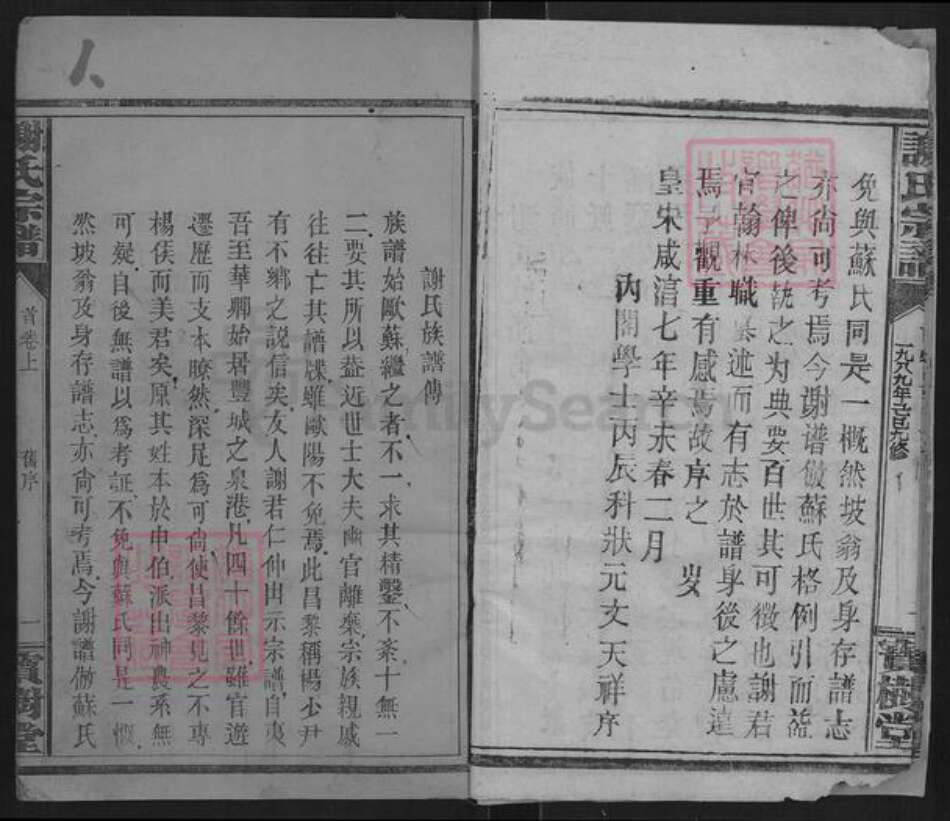 謝氏宗譜
一九八九年己巳九修
寶樹堂
免與蘇氏同是一概然坡翁及身存譜志
亦尚可考焉今谢谱倣蘇氏格例引而
之俾後
为典要百世其可徵也謝君
官翰林職
述而有志於譜身後之慮遠
焉予觀重有感焉故序之
歲
皇宋咸淳七年辛未春二月
内閣學士丙辰科狀元文天祥序
謝氏族譜傳
族譜始歐蘇繼之者不一求其精鑿不紊十無一
二要其所以葢近世士大夫幽官離棄宗族親戚
往往亡其譜牒雖歐陽不免焉此昌黎稱楊少尹
有不鄉之說信矣友人謝君仁仲出示宗譜自夷
吾至華卿始居豐城之泉港凡四十餘世雖官遊
遷歷而支本瞭然深足爲可尚使昌黎見之不專
楊侯而美君矣原其姓本於申伯派出神農系無
可疑自後無譜以爲考証不免與蘇氏同是一慨
然坡翁及身存譜志亦尚可考焉今謝譜倣蘇氏
謝氏宗譜
首卷上
舊序
一
寶樹堂
FamilySearch